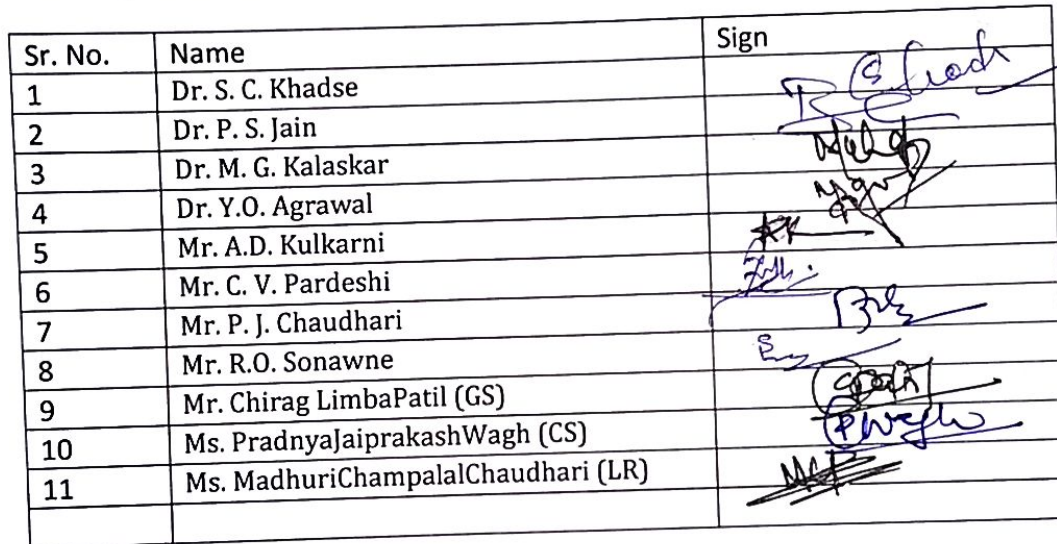 Sr. No. Name Sign
1 Dr. S. C. Khadse
2 Dr. P. S. Jain
3 Dr. M. G. Kalaskar
4 Dr. Y.O. Agrawal
5 Mr. A.D. Kulkarni
6 Mr. C. V. Pardeshi
7 Mr. P. J. Chaudhari
8 Mr. R.O. Sonawne
9 Mr. Chirag LimbaPatil (GS)
10 Ms. PradnyaJaiprakashWagh (CS)
11 Ms. MadhuriChampalalChaudhari (LR)